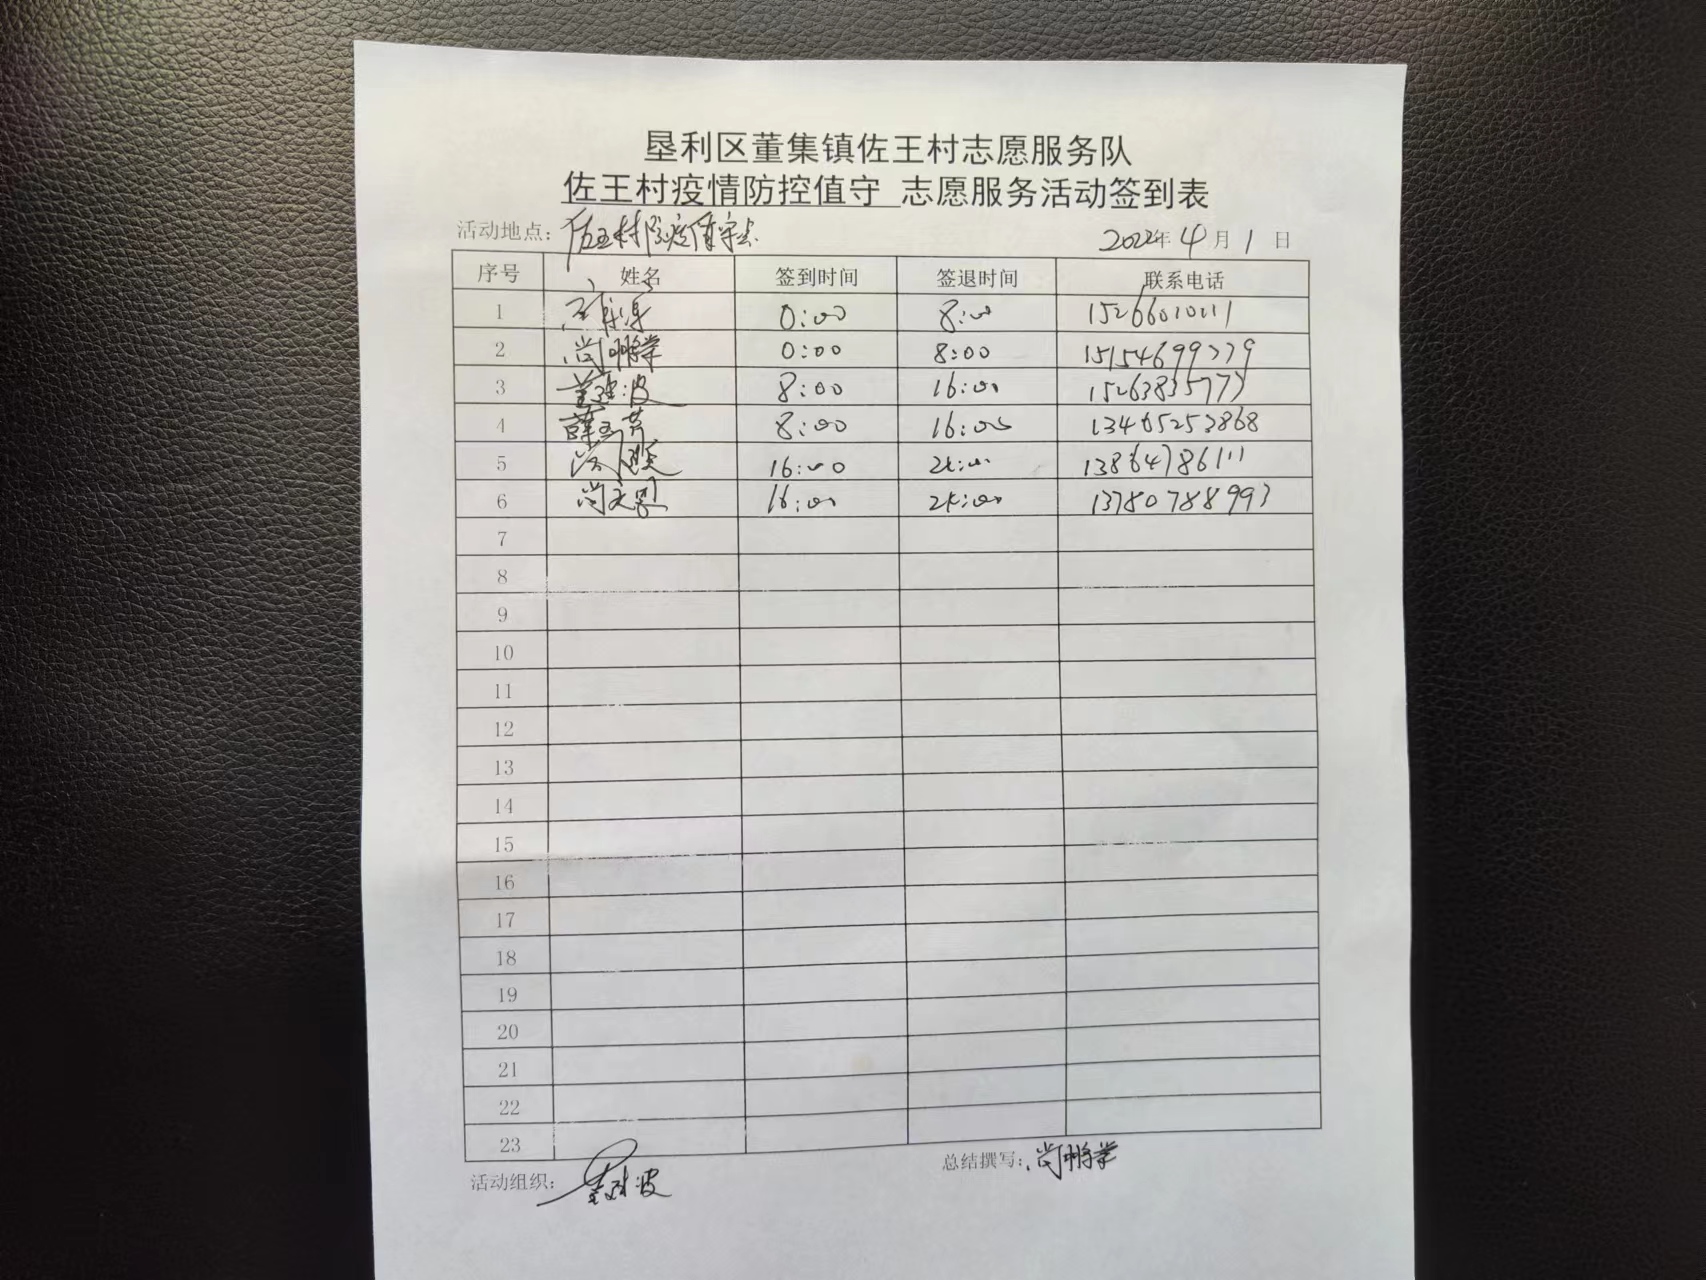 垦利区董集镇佐王村志愿服务队
佐王村疫情防控值守 志愿服务活动签到表
活动地点：佐王村防疫值守点 2022年4月1日
序号 姓名 签到时间 签退时间 联系电话
1 0:00 8:00 15266010011
2 尚鹏学 0:00 8:00 15154699779
3 董建波 8:00 16:00 15263835773
4 薛玉芹 8:00 16:00 13465253868
5 16:00 24:00 13864786111
6 尚文 16:00 24:00 13780788993
7
8
9
10
11
12
13
14
15
16
17
18
19
20
21
22
23
活动组织：董建波 总结撰写：尚鹏学